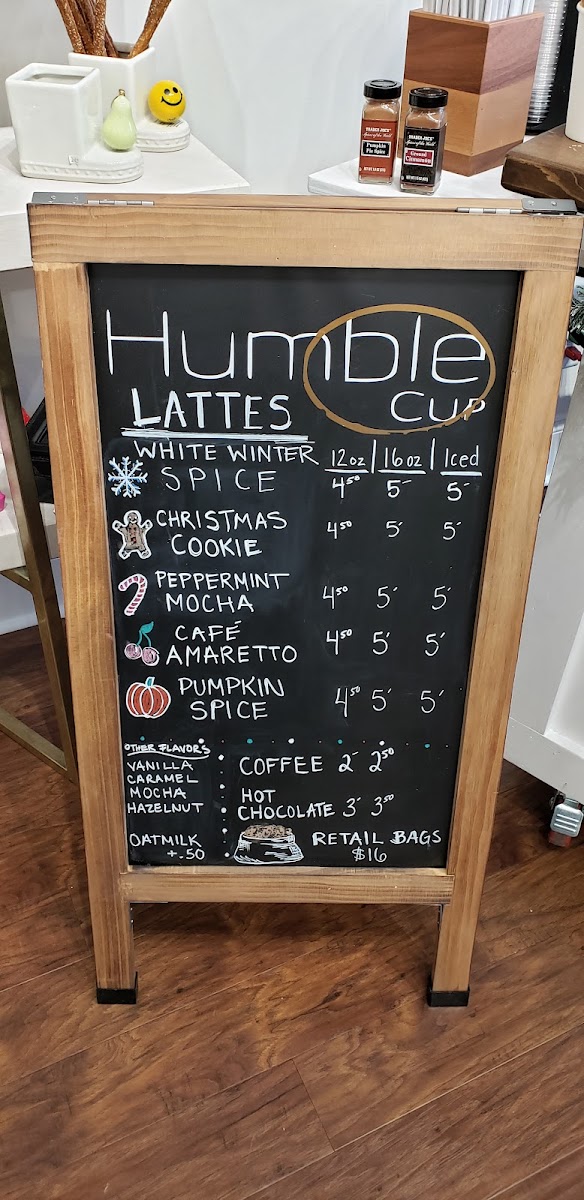 TRADER JOE'S
Pumpkin
Pie Spice
TRADER JOE'S
Ground
Cinnamon
Humble
Cup
LATTES
WHITE WINTER 12oz | 16oz | Iced
SPICE 4.50 5- 5-
CHRISTMAS 4.50 5- 5-
COOKIE
PEPPERMINT
MOCHA 4.50 5- 5-
CAFÉ 4.50 5- 5-
AMARETTO
PUMPKIN 4.50 5- 5-
SPICE
OTHER FLAVORS
VANILLA
CARAMEL
MOCHA
HAZELNUT
OATMILK
+.50
COFFEE 2- 2.50
HOT
CHOCOLATE 3- 3.50
RETAIL BAGS
$16